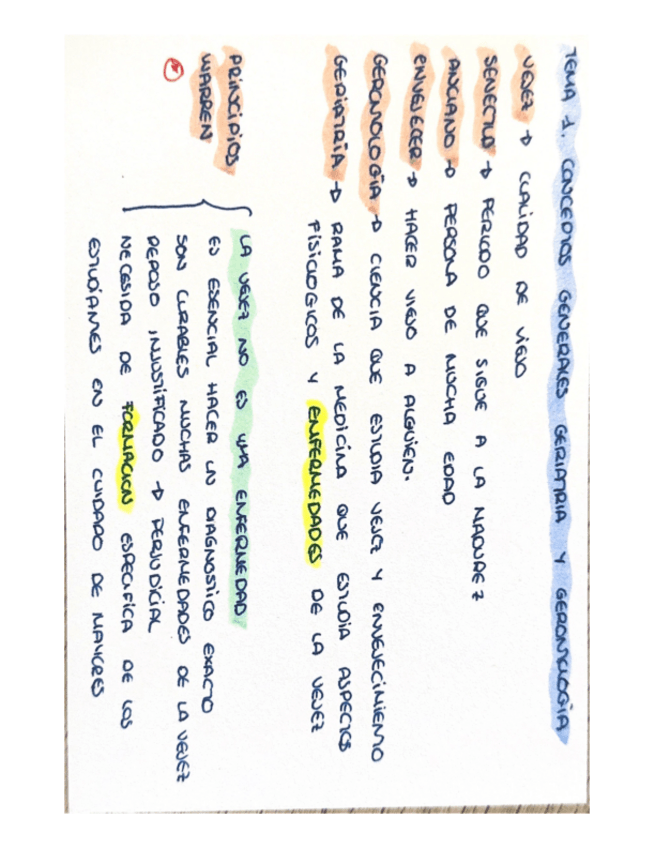 TEMA 1. CONCEPTOS GENERALES GERIATRIA Y GERONTOLOGÍA
VEJEZ → CUALIDAD DE VIEJO
SENECTUD → PERIODO QUE SIGUE A LA MADUREZ
ANCIANO → PERSONA DE MUCHA EDAD
ENVEJECER → HACER VIEJO A ALGUIEN.
GERONTOLOGÍA → CIENCIA QUE ESTUDIA VEJEZ Y ENVEJECIMIENTO
GERIATRIA → RAMA DE LA MEDICINA QUE ESTUDIA ASPECTOS
FISIOLOGICOS Y ENFERMEDADES DE LA VEJEZ
PRINCIPIOS WARREN
LA VEJEZ NO ES UNA ENFERMEDAD
ES ESENCIAL HACER UN DIAGNOSTICO EXACTO
SON CURABLES MUCHAS ENFERMEDADES DE LA VEJEZ
REPOSO INJUSTIFICADO → PERJUDICIAL
NECESIDA DE FORMACION ESPECIFICA DE LOS
ESTUDIANES EN EL CUIDADO DE MAYORES